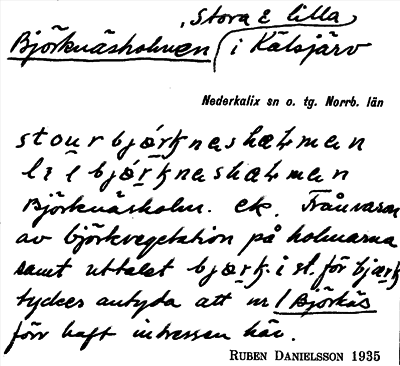 , Stora & lilla
Björknäsholmen i Kälsjärv
Nederkalix sn o. tg. Norrb. län
Björknäsholm. ek. Frånvaron
av björkvegetation på holmarna
samt uttalet bjœrk. i st. för bjærk
tyckes antyda att nr 1 Björkäs
förr haft intressen här.
RUBEN DANIELSSON 1935